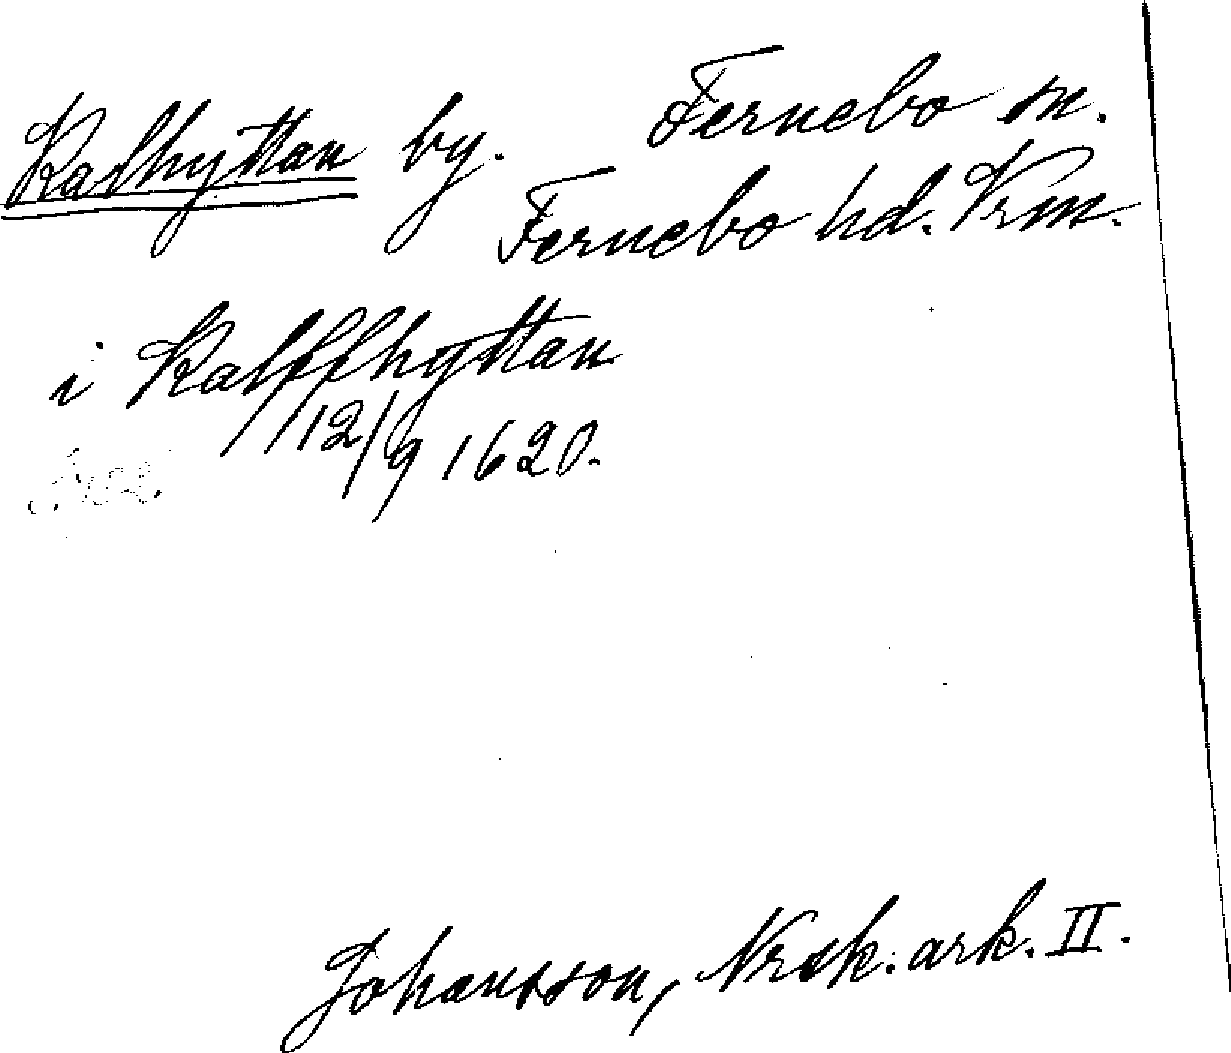 Kalhyttan by. Fernebo sn.
Fernebo hd. Vrm.
i Kalffhyttan
12/9 1620.
Johansson, Nrsk. ark. II.